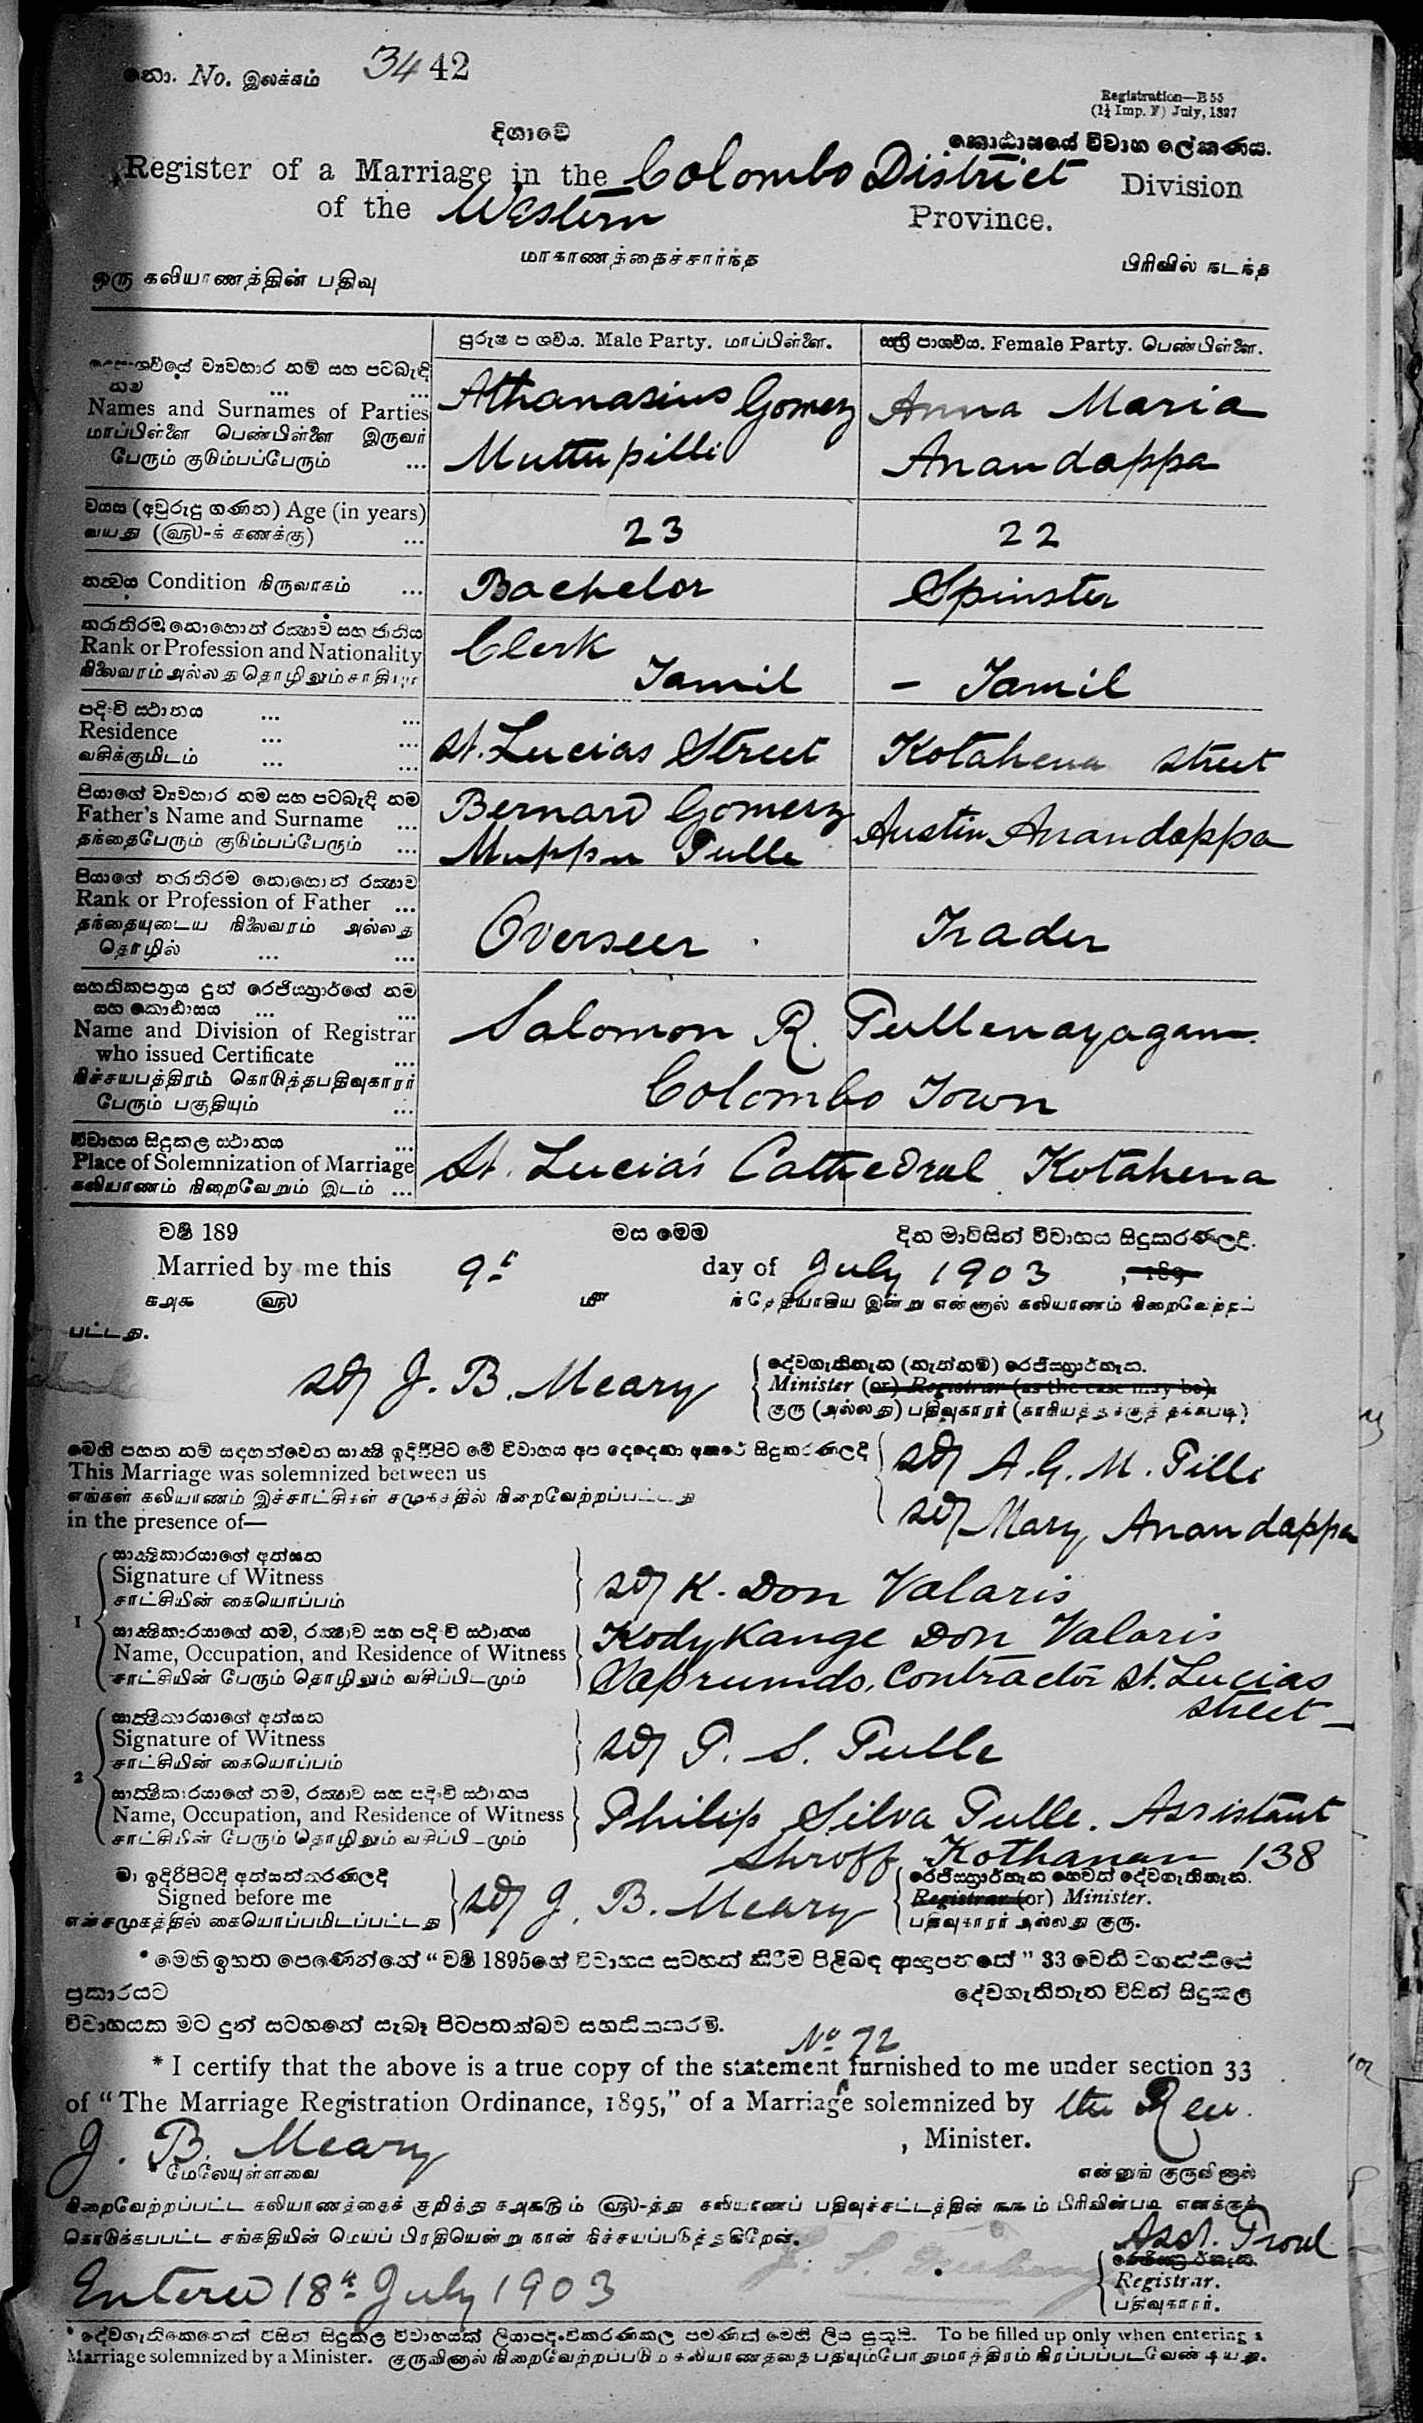 නො. No. இலக்கம் 3442
Registration—B 55
(1½ Imp. F) July, 1897
දිගාවේ
කොඨාසයේ විවාහ ලේකණය.
Register of a Marriage in the Colombo District Division
of the Western Province.
மாகாணத்தைச்சார்ந்த
ஒரு கலியாணத்தின் பதிவு பிரிவில் நடந்த
පුරුෂ පාශවීය. Male Party. மாப்பிள்ளை. ස්ත්‍රී පාශවීය. Female Party. பெண்பிள்ளை.
දෙපාශවීයේ ව්‍යවහාර නම් සහ පටබැඳි
නම ... ...
Names and Surnames of Parties
மாப்பிள்ளை பெண்பிள்ளை இருவர்
பேரும் குடும்பப்பேரும் ...
Athanasius Gomez Anna Maria
Muttupilli Anandappa
වයස (අවුරුදු ගණන) Age (in years)
வயது (௵-க் கணக்கு) ...
23 22
තත්වය Condition நிருவாகம் ... Bachelor Spinster
තරාතිරම නොහොත් රක්‍ෂාව සහ ජාතිය
Rank or Profession and Nationality
நிலைவரம் அல்லது தொழிலும் சாதியும்
Clerk
Tamil – Tamil
පදිංචි ස්ථානය ... ...
Residence ... ...
வசிக்குமிடம் ... ...
St. Lucias Street Kotahena Street
පියාගේ ව්‍යවහාර නම සහ පටබැඳි නම
Father's Name and Surname ...
தந்தைபேரும் குடும்பப்பேரும் ...
Bernard Gomez Austin Anandappa
Muppu Pulle
පියාගේ තරාතිරම නොහොත් රක්‍ෂාව
Rank or Profession of Father ...
தந்தையுடைய நிலைவரம் அல்லது
தொழில் ... ...
Overseer Trader
සහතිකපත්‍රය දුන් රෙජිස්ත්‍රාර්ගේ නම
සහ කොඨාසය ... ...
Name and Division of Registrar
who issued Certificate ...
நிச்சயபத்திரம் கொடுத்தபதிவுகாரர்
பேரும் பகுதியும் ...
Salomon R. Pullenayagam.
Colombo Town
විවාහය සිදුකල ස්ථානය ...
Place of Solemnization of Marriage
கலியாணம் நிறைவேறும் இடம் ...
St. Lucia's Cathedral Kotahena
වර්‍ෂ 189 මස මෙම දින මාවිසින් විවාහය සිදුකරණලදි.
Married by me this 9t day of July 1903 , 189
௧௮௯ ௵ ௴ ந்தேதியாகிய இன்று என்னால் கலியாணம் நிறைவேற்றப்
பட்டது.
sd/ J. B. Meary
දේවගැතිතැන (නැත්නම්) රෙජිස්ත්‍රාර්තැන.
Minister (or) Registrar (as the case may be).
குரு (அல்லது) பதிவுகாரர் (காரியத்துக்குத் தக்கபடி)
මෙහි පහත නම් සඳහන්වෙන සාක්‍ෂි ඉදිරිපිට මේ විවාහය අප දෙදෙනා අතරේ සිදුකරණලදි
This Marriage was solemnized between us
எங்கள் கலியாணம் இச்சாட்சிகள் சமுகத்தில் நிறைவேற்றப்பட்டது
in the presence of—
sd/ A. G. M. Pille
sd/ Mary Anandappa
1
සාක්‍ෂිකාරයාගේ අත්සන
Signature of Witness
சாட்சியின் கையொப்பம்
sd/ K. Don Valaris
සාක්‍ෂිකාරයාගේ නම, රක්‍ෂාව සහ පදිංචි ස්ථානය
Name, Occupation, and Residence of Witness
சாட்சியின் பேரும் தொழிலும் வசிப்பிடமும்
Kodykange Don Valaris
Contractor St. Lucias
Street –
2
සාක්‍ෂිකාරයාගේ අත්සන
Signature of Witness
சாட்சியின் கையொப்பம்
sd/ P. S. Pulle
සාක්‍ෂිකාරයාගේ නම, රක්‍ෂාව සහ පදිංචි ස්ථානය
Name, Occupation, and Residence of Witness
சாட்சியின் பேரும் தொழிலும் வசிப்பிடமும்
Philip Silva Pulle. Assistant
Shroff Kothanan 138
මා ඉදිරිපිටදී අත්සන්කරණලදි
Signed before me
என்சமுகத்தில் கையொப்பமிடப்பட்டது
sd/ J. B. Meary
රෙජිස්ත්‍රාර්තැන හෙවත් දේවගැතිතැන.
Registrar (or) Minister.
பதிவுகாரர் அல்லது குரு.
* මෙහි ඉහත පෙණෙන්නේ “වර්‍ෂ 1895ගේ විවාහය සටහන් කිරීම පිළිබඳ ආඥාපනතේ” 33 වෙනි වගන්තියේ
ප්‍රකාරයට දේවගැතිතැන විසින් සිදුකල
විවාහයක මට දුන් සටහනේ සැබෑ පිටපතක්බව සහතිකකරමි.
No 72
* I certify that the above is a true copy of the statement furnished to me under section 33
of “The Marriage Registration Ordinance, 1895,” of a Marriage solemnized by the Rev.
J. B. Meary , Minister.
* மேலேயுள்ளவை என்னுங் குருவினால்
நிறைவேற்றப்பட்ட கலியாணத்தைக் குறித்து ௧௮௯௫ம் ௵-த்து கலியாணப் பதிவுச்சட்டத்தின் ௩௩ம் பிரிவின்படி எனக்குக்
கொடுக்கப்பட்ட சங்கதியின் மெய்ப் பிரதியென்று நான் நிச்சயப்படுத்துகிறேன்.
Asst. Provl
රෙජිස්ත්‍රාර්තැන.
Registrar.
பதிவுகாரர்.
Entered 18th July 1903
* දේවගැතිකෙනෙක් විසින් සිදුකල විවාහයක් ලියාපදිංචිකරණකල පමණක් මෙහි ලිය යුතුයි. To be filled up only when entering a
Marriage solemnized by a Minister. குருவினால் நிறைவேற்றப்படும் கலியாணத்தை பதியும்போதுமாத்திரம் நிரப்பப்படவேண்டியது.